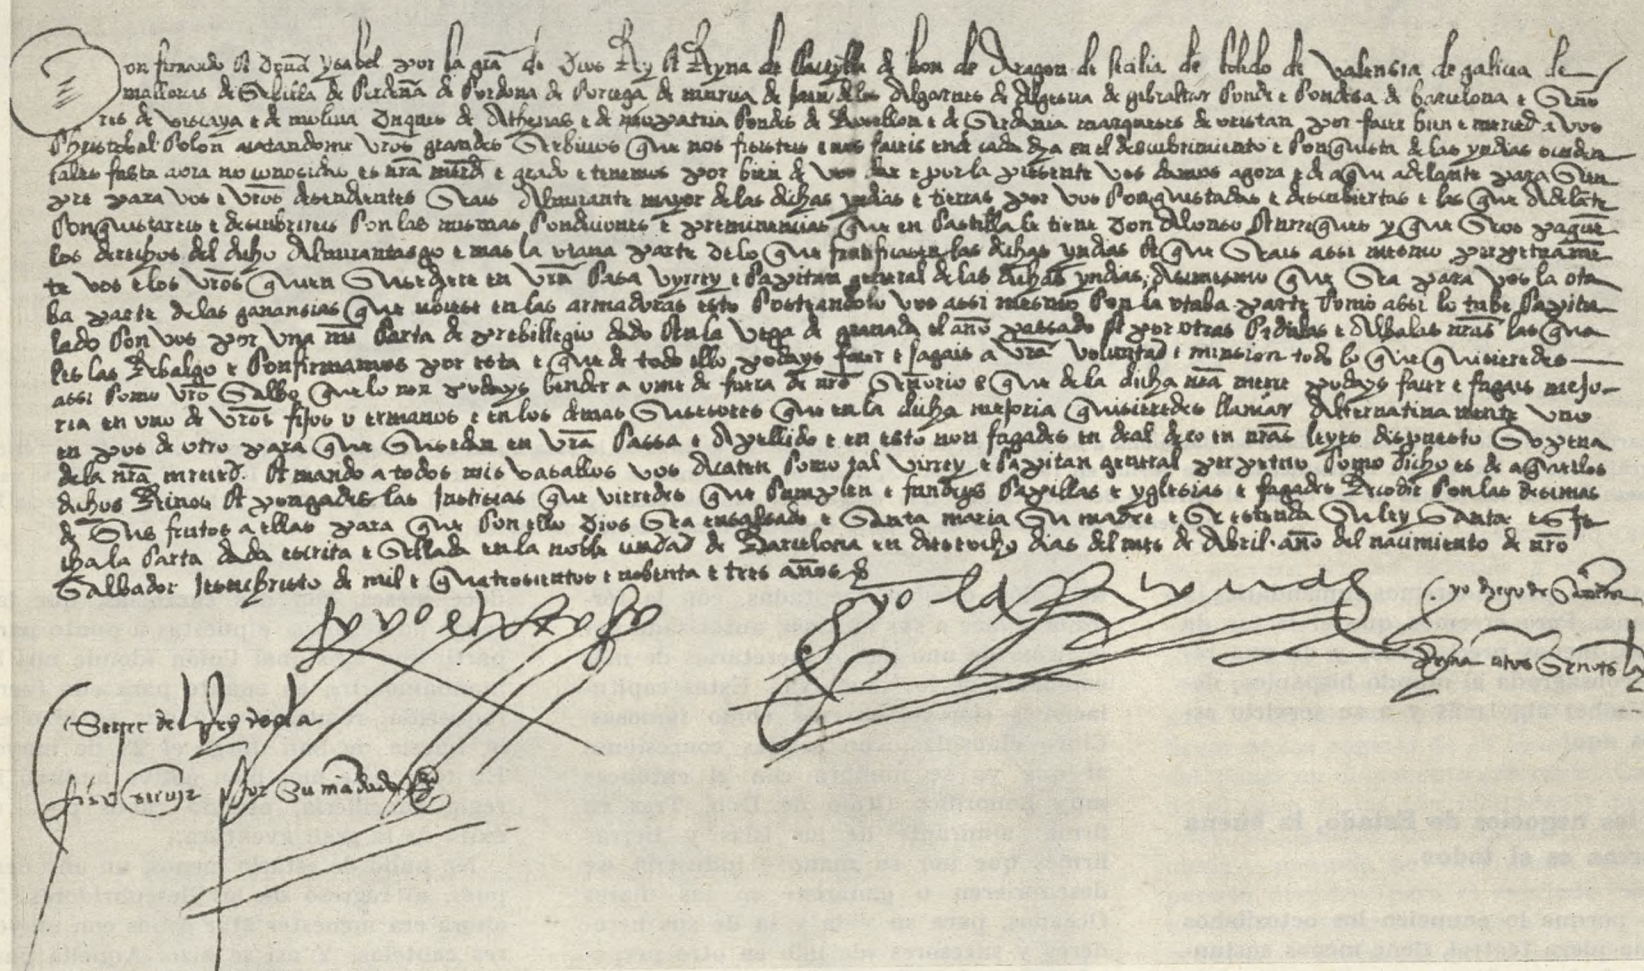 Don fernando A Doña ysabel por la grã de Dios Rey A Reyna de Castylla de leon de Aragon de sicilia de toledo de valensia de galicia de
mallorcas de Sevilla de Cerdeña de Cordova de Corcega de murcia de Jaen de los Algarves de Algesira de gibraltar Conde e Condesa de barcelona e Seño
res de viscaya e de molina Duques de Athenas e de neopatria Condes de Rosellon e de Serdania marqueses de oristan por faser bien e merced a vos
Christobal Colon acatandome vrõs grandes Serbicios que nos fisisteis e nos faceis en de cada dya en el descubrimiento e Conquista de las yndias ociden
tales fasta aora no conosidas es nrã merd e grado e tenemos por bien de vos dar e por la presente vos damos agora e de aqui adelante para Sien
pre para vos e vrõs desendentes Seais Almirante mayor de las dichas yndias e tierras por vos Conquistadas e descubiertas e las que Adelãte
Conquistareis e descubrireis Con las mismas Condiciones e preminencias que en Castilla le tiene Don Alonso Anrreques y que Seos paguẽ
los derechos del dicho Almirantasgo e mas la otava parte de lo que frutificasen las dichas yndias A que Seais assi mesmo perpetuamẽ
te vos e los vrõs quien Susediere en vrã Casa vyrrey e Capitan general de las dichas yndias, Asimesmo que Sea para vos la ota
ba parte de las ganansias que ubiese en las armaduras esto Costeandolo vos assi mesmo Con la otaba parte Como assi lo tube Capitu
lado Con vos por una mi Carta de prebillegio dado En la vega de granada el año passado A por otras Cedulas e Albalas nrãs las qua
les las Rebalgo e Confirmamos por esta e que de todo ello podays faser e fagais a vrã voluntad e minsion todo lo que quisieredes
assi Como vrõ Salbo que lo non podays bender a ome de fuera de nrõ Señorio e que de la dicha nrã merce podays faser e fagais mejo-
ria en uno de vrõs fijos o ermanos e en los demas Susesores que en la dicha mejoria quisieredes llamar Alternatinamente uno
en pos de otro para que Susedan en vrã Cassa e Apellido e en esto non fagades en deal deco en nrãs leyes dispuesto So pena
de la nrã merced. A mando a todos mis vasallos vos Acaten Como tal virrey e Capitan general perpetuo Como dicho es de aquellos
dichos Reinos A pongades las Justisias que vieredes que Cumplen e fundeys Capillas e yglesias e fagades Recodir Con las desimas
de Sus frutos a ellas para que Con ello Dios Sea ensalsado e Santa maria Su madre e Se estenda Su ley Santa e Se fe
cha la Carta dada escrita e Sellada en la noble ciudad de Barcelona en diesiocho dias del mes de Abril. año del nacimiento de nrõ
Salbador Jesuchristo de mil e quatrosientos e nobenta e tres años
yo el Rey
yo la Reyna
yo diego de
Secre del Rey
por su mandado